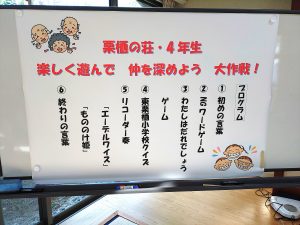 栗栖の荘・４年生
楽しく遊んで　仲を深めよう　大作戦！
プログラム
① 初めの言葉
② NGワードゲーム
③ わたしはだれでしょう
ゲーム
④ 東栗栖小学校クイズ
⑤ リコーダー奏
「エーデルワイス」
「もののけ姫」
⑥ 終わりの言葉